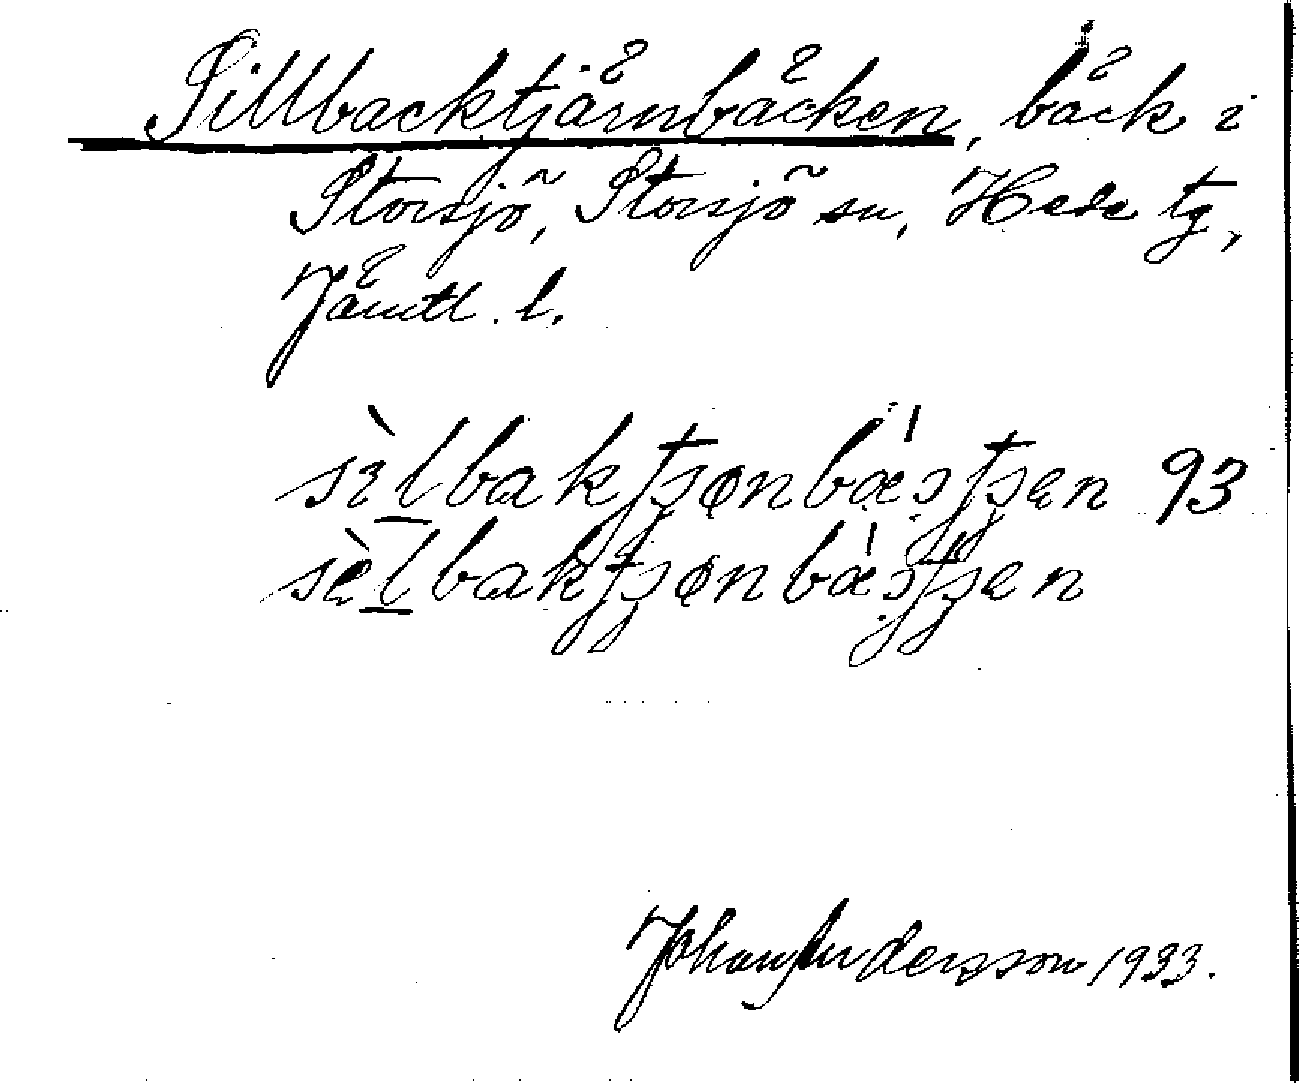 Sillbacktjärnbäcken, bäck i
Storsjö, Storsjö sn, Hede tg,
Jämtl. l.
sɪ̀lbaktʂønbæ̀ɔtʂen 93
sèlbaktʂønbæ̀ɔtʂen
Johan Andersson 1933.